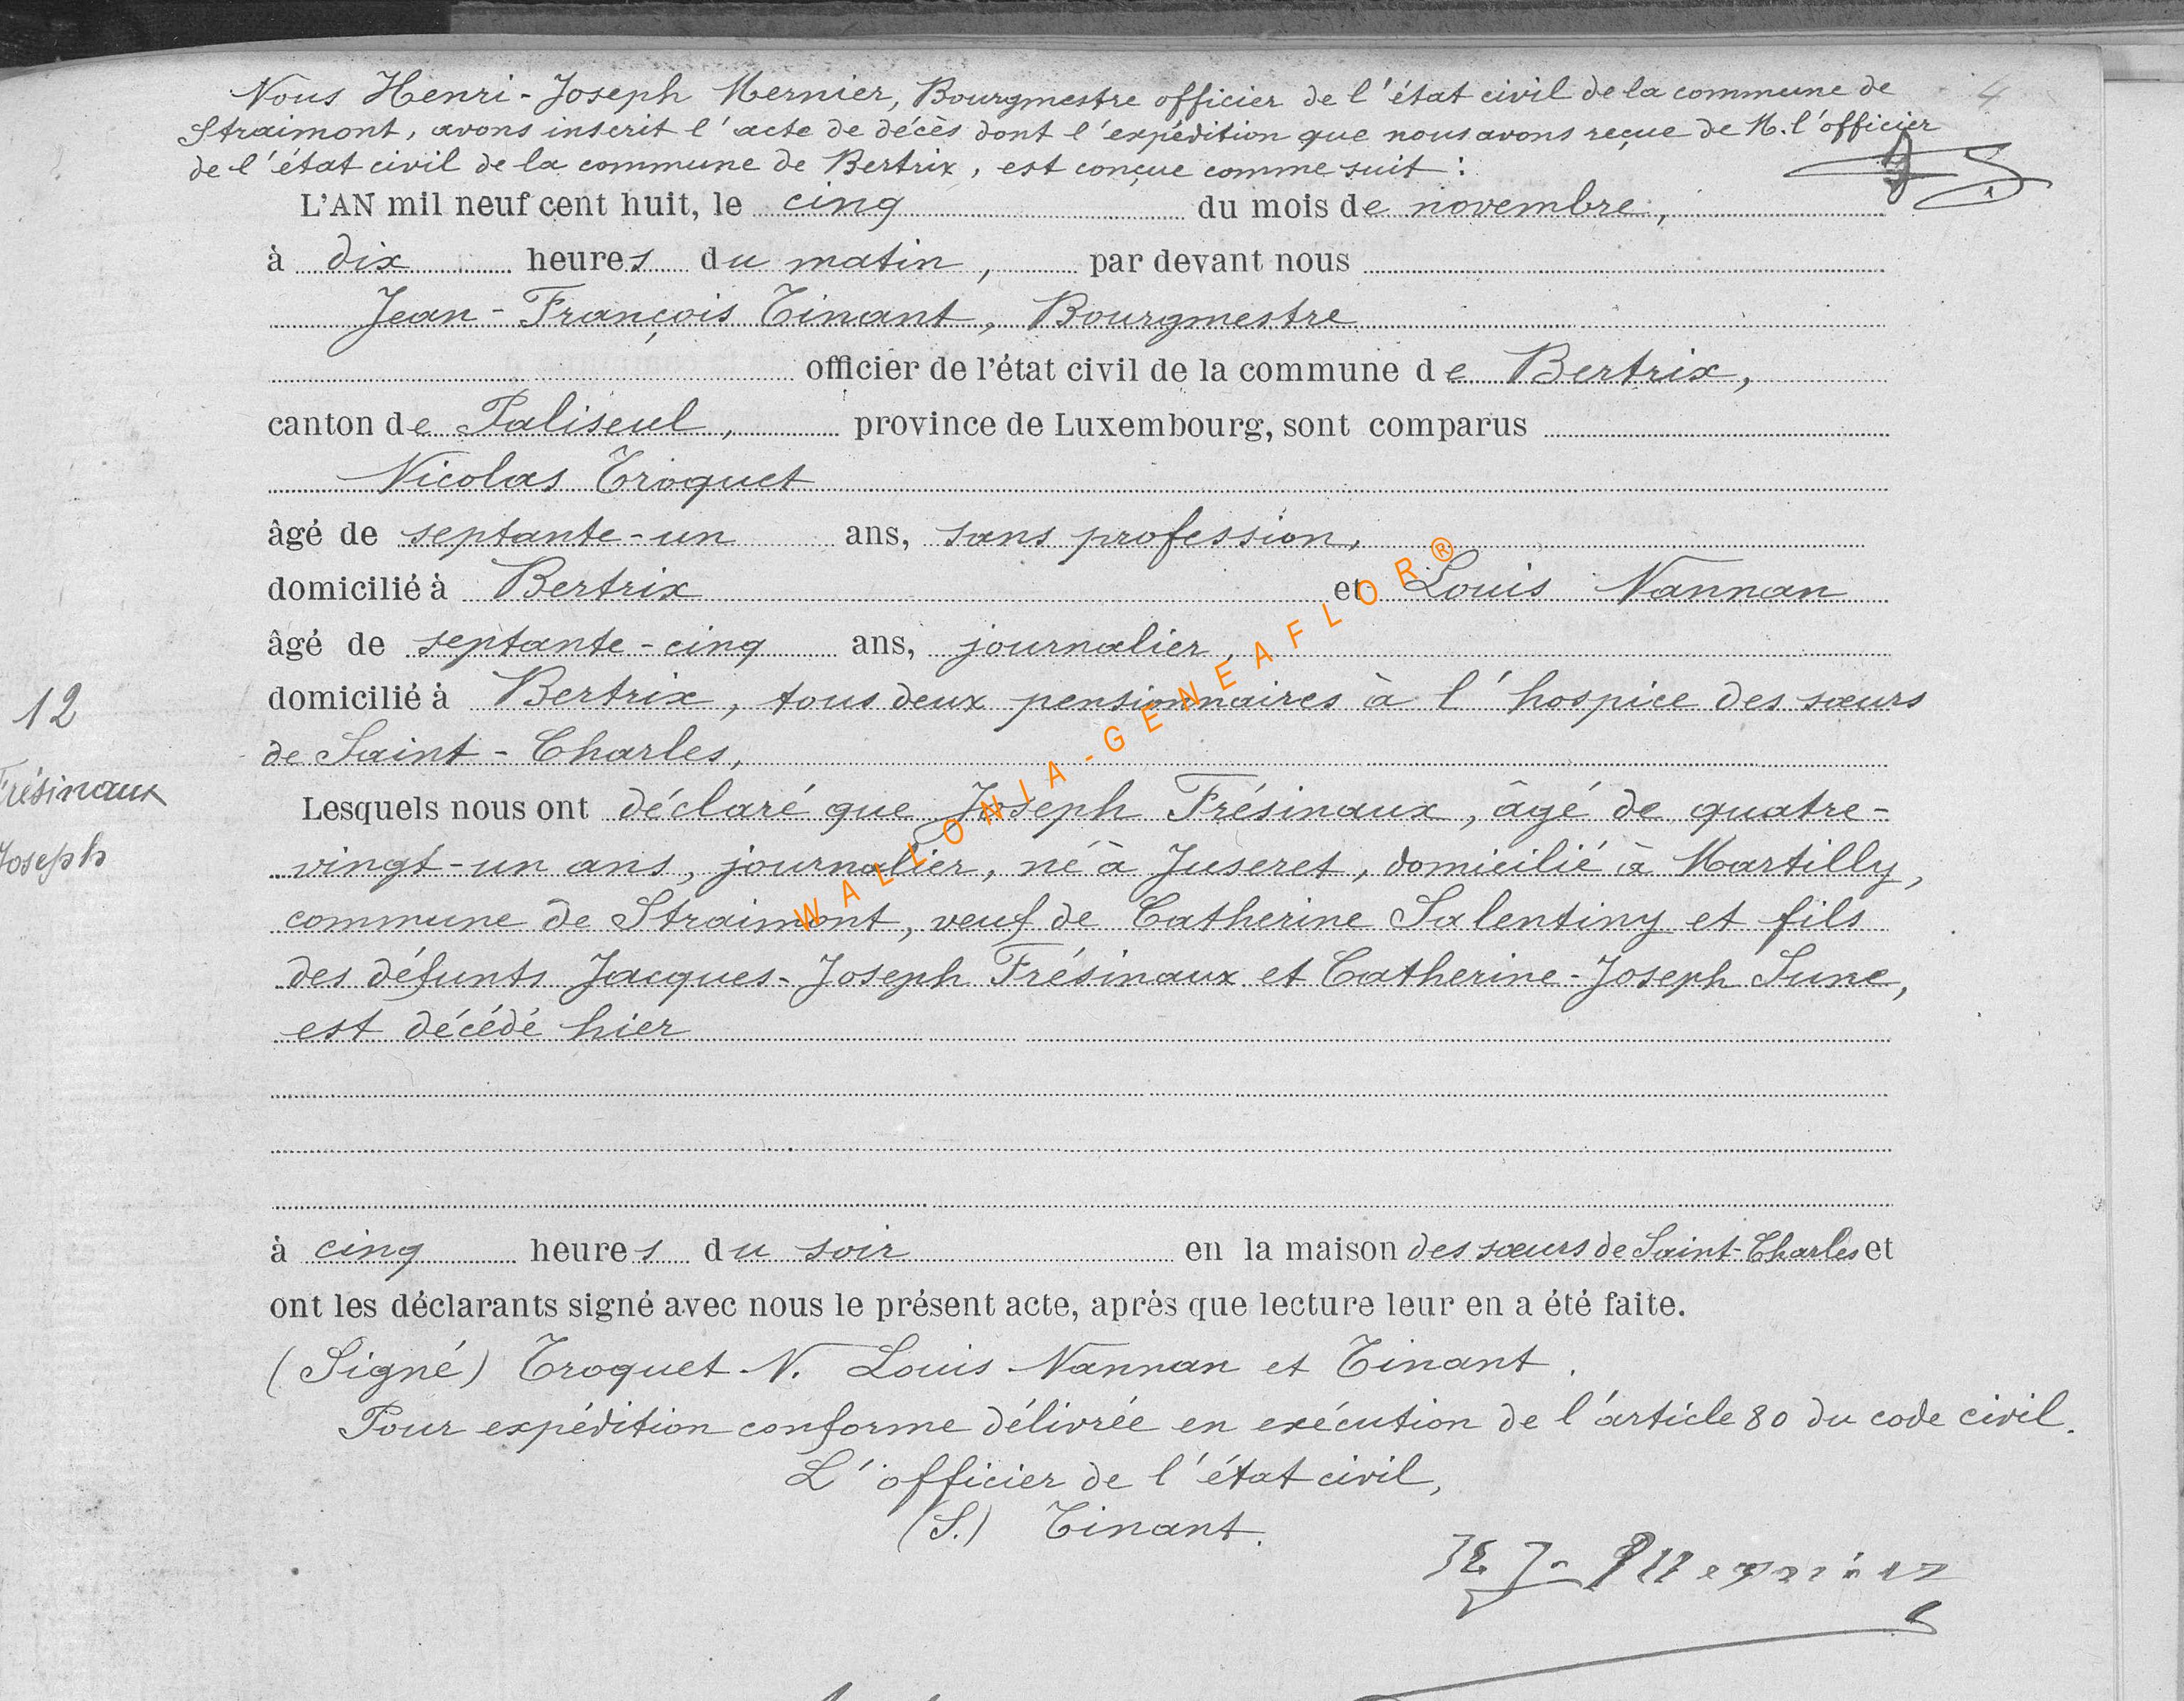 Nous Henri-Joseph Mernier, Bourgmestre officier de l'état civil de la commune de
4
Straimont, avons inscrit l'acte de décès dont l'expédition que nous avons reçue de M. l'officier
de l'état civil de la commune de Bertrix, est conçue comme suit :
L'AN mil neuf cent huit, le cinq du mois de novembre,
à dix heures du matin, par devant nous
Jean-François Tinant, Bourgmestre
officier de l'état civil de la commune de Bertrix,
canton de Paliseul, province de Luxembourg, sont comparus
Nicolas Troquet
âgé de septante-un ans, sans profession,
domicilié à Bertrix et Louis Nannan
âgé de septante-cinq ans, journalier,
domicilié à Bertrix, tous deux pensionnaires à l'hospice des sœurs
de Saint-Charles,
12
Frésinaux
Joseph
Lesquels nous ont déclaré que Joseph Frésinaux, âgé de quatre-
vingt-un ans, journalier, né à Juseret, domicilié à Martilly,
commune de Straimont, veuf de Catherine Salentiny et fils
des défunts Jacques-Joseph Frésinaux et Catherine-Joseph Sune,
est décédé hier
à cinq heures du soir en la maison des sœurs de Saint-Charles et
ont les déclarants signé avec nous le présent acte, après que lecture leur en a été faite.
(Signé) Troquet N. Louis Nannan et Tinant.
Pour expédition conforme délivrée en exécution de l'article 80 du code civil.
L'officier de l'état civil,
(S.) Tinant.
H J- Mernier
WALLONIA-GENEAFLOR®